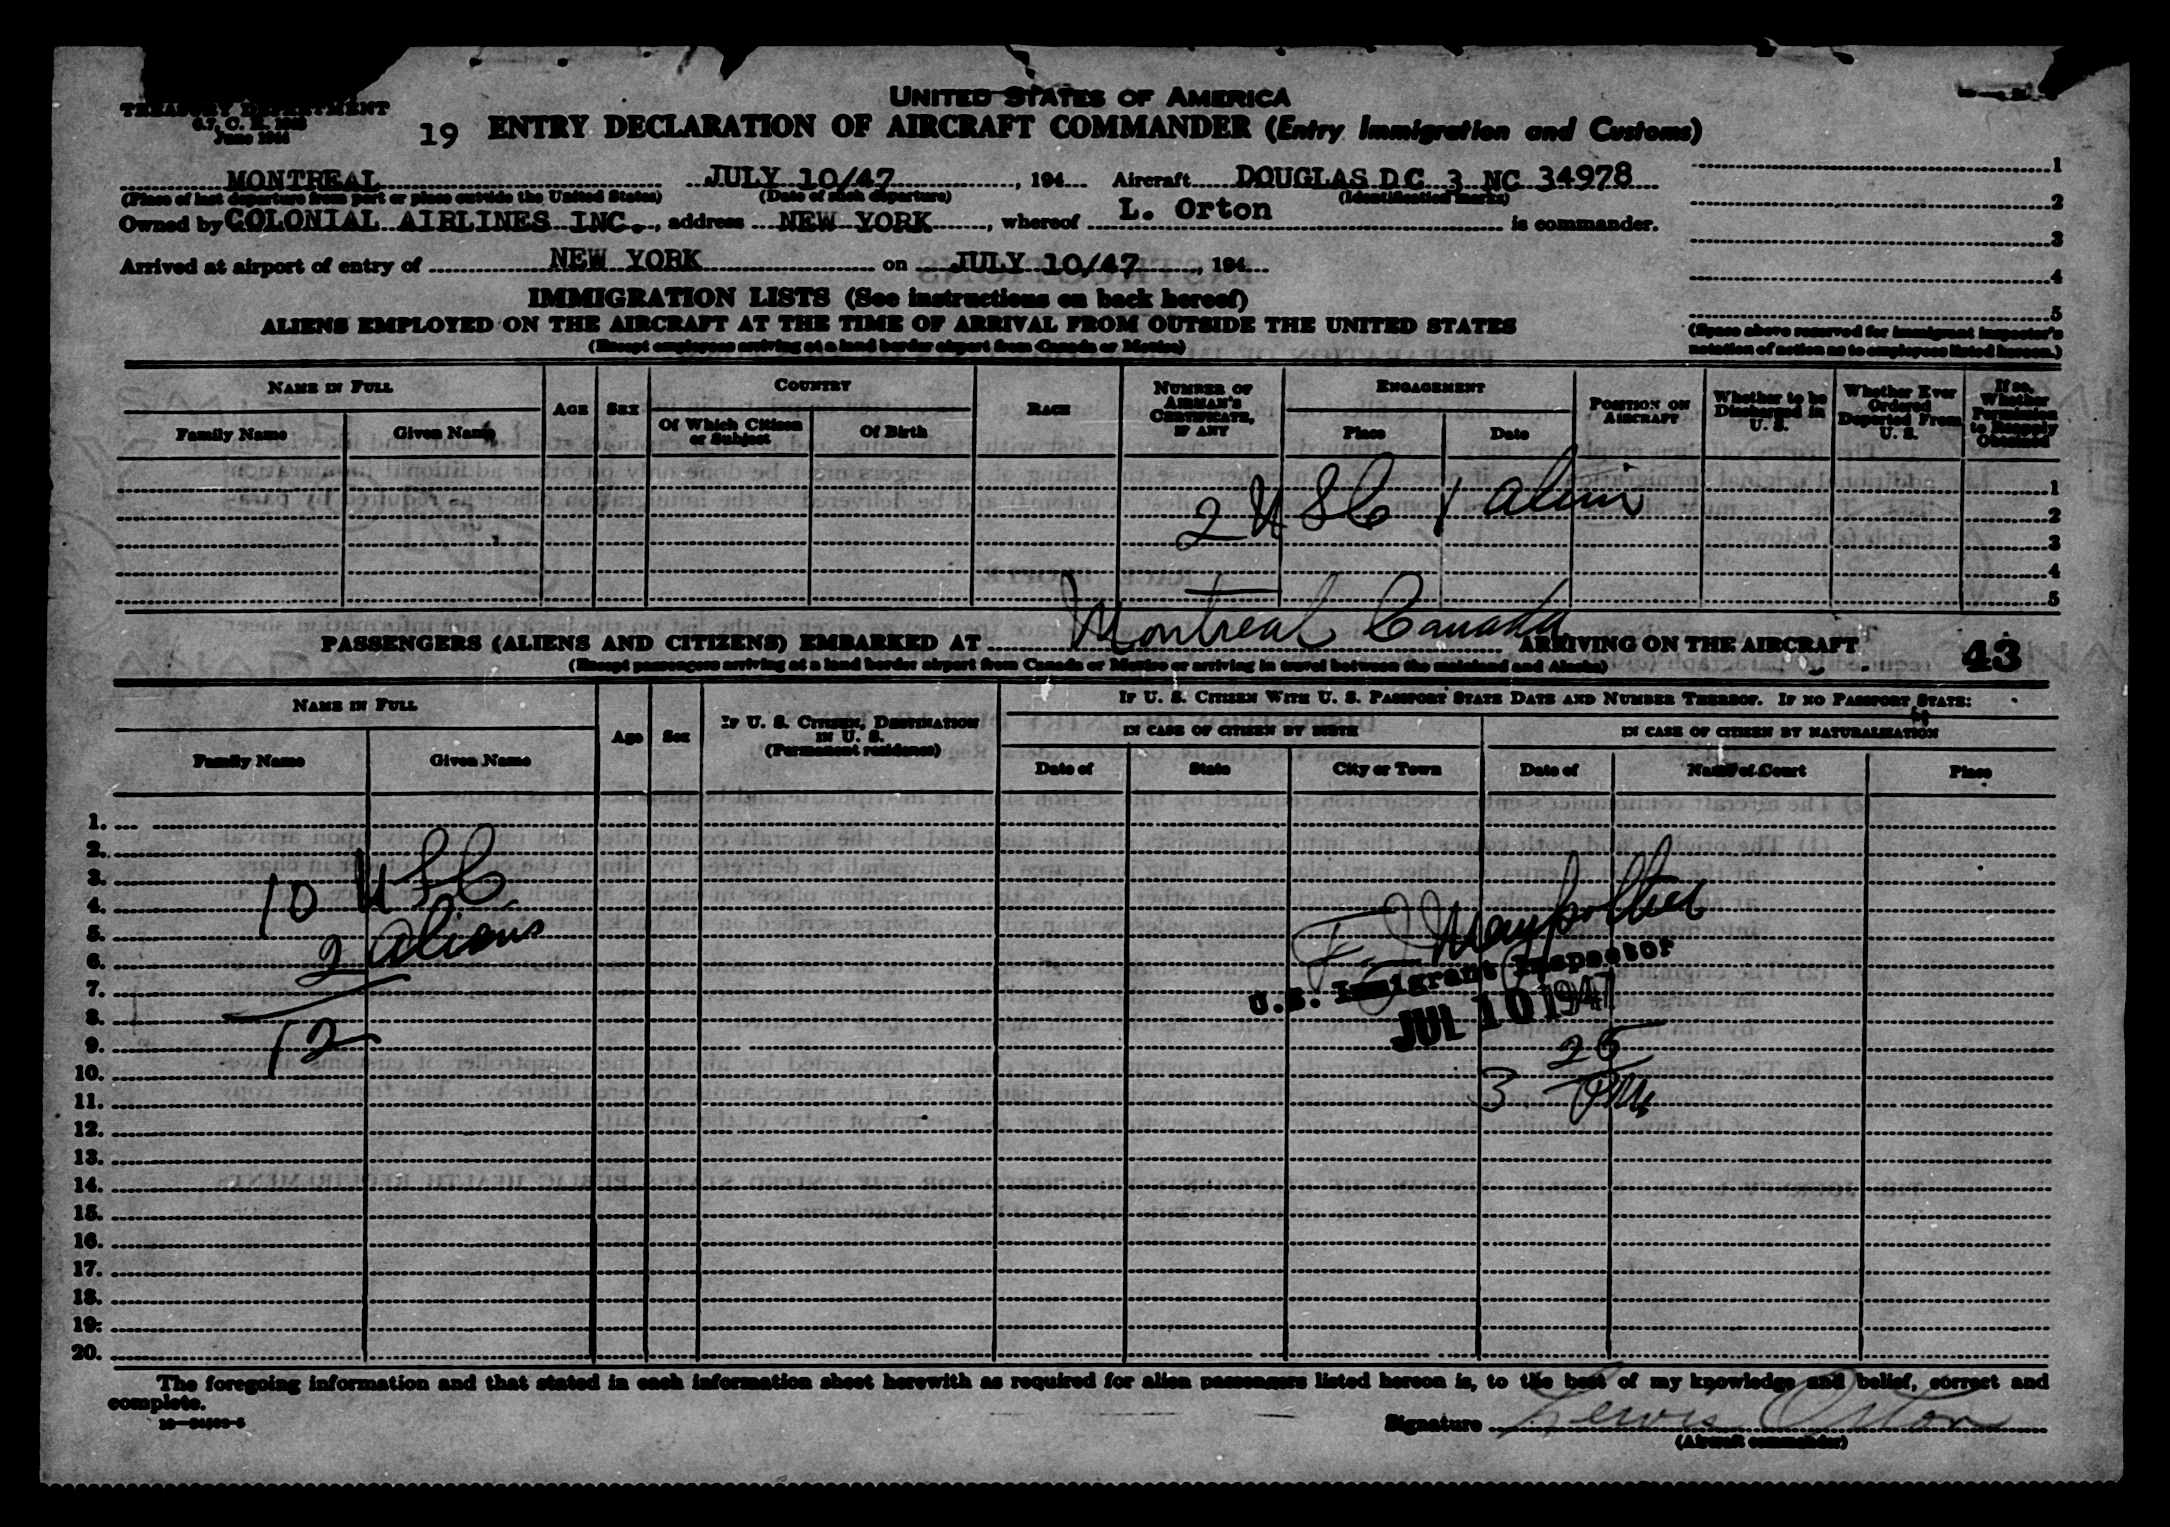 UNITED STATES OF AMERICA
TREASURY DEPARTMENT
19 ENTRY DECLARATION OF AIRCRAFT COMMANDER (Entry Immigration and Customs)
June 1944
MONTREAL JULY 10/47, 194 Aircraft DOUGLAS DC 3 NC 34978
(Place of last departure from port or place outside the United States) (Date of such departure) (Identification marks)
Owned by COLONIAL AIRLINES INC., address NEW YORK, whereof L. Orton is commander.
Arrived at airport of entry of NEW YORK on JULY 10/47, 194
1
2
3
4
5
(Space above reserved for immigrant inspector's
notation of action as to employees listed hereon.)
IMMIGRATION LISTS (See instructions on back hereof)
ALIENS EMPLOYED ON THE AIRCRAFT AT THE TIME OF ARRIVAL FROM OUTSIDE THE UNITED STATES
(Except employees arriving at a land border airport from Canada or Mexico)
NAME IN FULL
Family Name Given Name
AGE SEX
COUNTRY
Of Which Citizen or Subject Of Birth
RACE
NUMBER OF AIRMAN'S CERTIFICATE, IF ANY
ENGAGEMENT
Place Date
POSITION ON AIRCRAFT
Whether to be Discharged in U. S.
Whether Ever Ordered Deported From U. S.
If so, Whether Permission to Reapply Obtained
1
2
3
4
5
2 USC 1 Alien
PASSENGERS (ALIENS AND CITIZENS) EMBARKED AT Montreal Canada ARRIVING ON THE AIRCRAFT 43
(Except passengers arriving at a land border airport from Canada or Mexico or arriving in travel between the mainland and Alaska)
NAME IN FULL
Family Name Given Name
Age Sex
IF U. S. CITIZEN, DESTINATION IN U. S.
(Permanent residence)
IF U. S. CITIZEN WITH U. S. PASSPORT STATE DATE AND NUMBER THEREOF. IF NO PASSPORT STATE:
IN CASE OF CITIZEN BY BIRTH IN CASE OF CITIZEN BY NATURALIZATION
Date of State City or Town Date of Name of Court Place
1.
2.
3.
4.
5.
6.
7.
8.
9.
10.
11.
12.
13.
14.
15.
16.
17.
18.
19.
20.
10 USC
2 Aliens
12
U.S. Immigrant Inspector
JUL 10 1947
3 25 PM
The foregoing information and that stated in each information sheet herewith as required for alien passengers listed hereon is, to the best of my knowledge and belief, correct and
complete.
Signature Lewis Orton
(Aircraft commander)